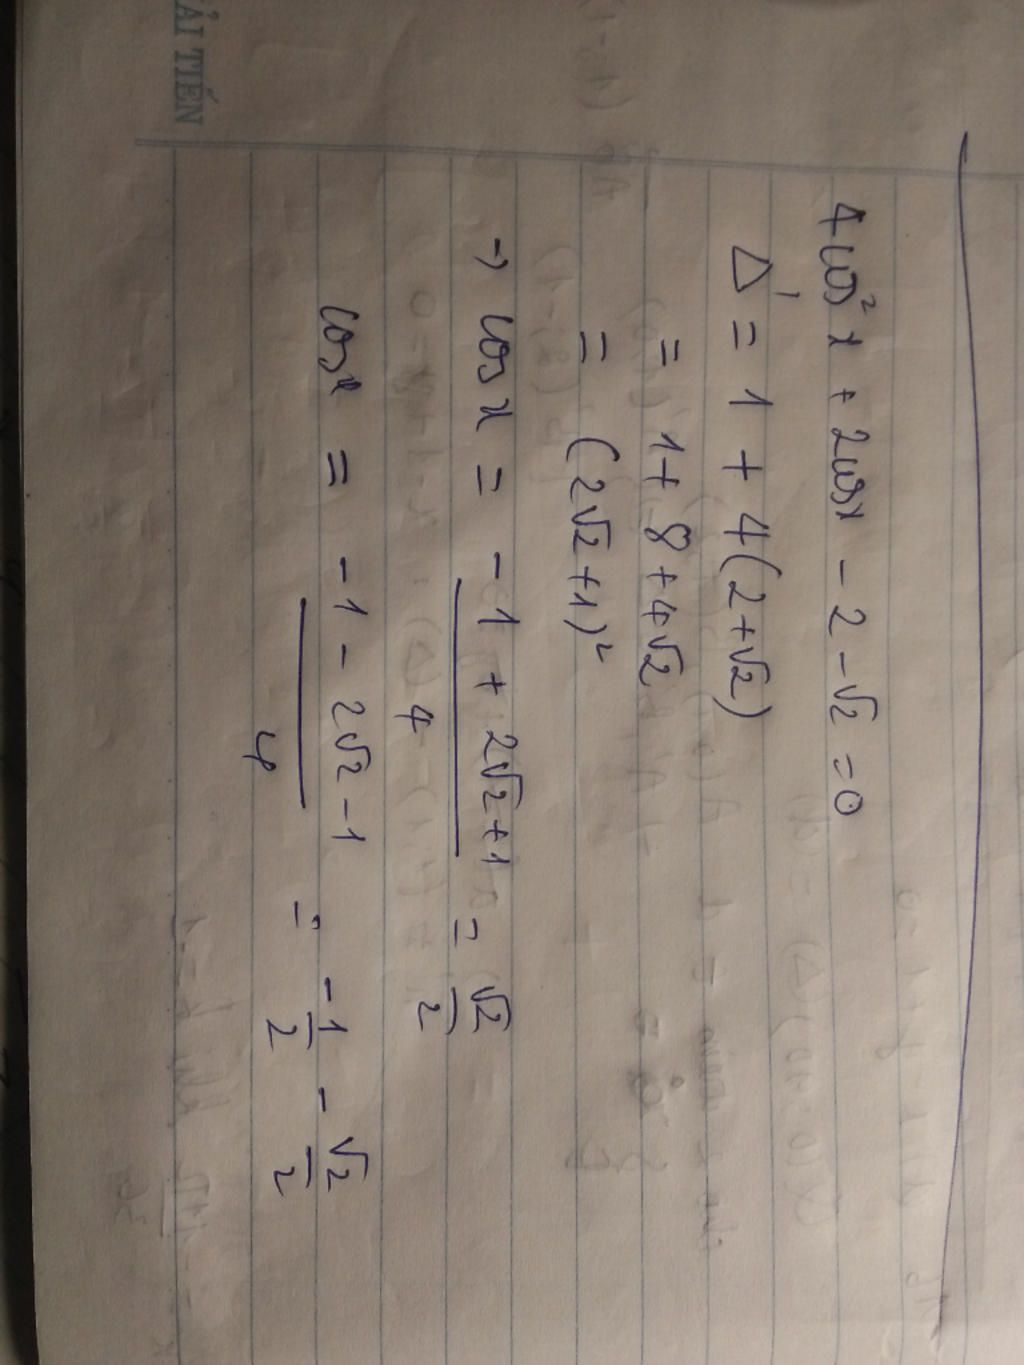 ẢI TIẾN
4cos² x + 2cosx - 2 - √2 = 0
Δ' = 1 + 4(2+√2)
= 1 + 8 + 4√2
= (2√2 + 1)²
→ cos x = (-1 + 2√2 + 1)/4 = √2/2
cosx = (-1 - 2√2 - 1)/4 = -1/2 - √2/2